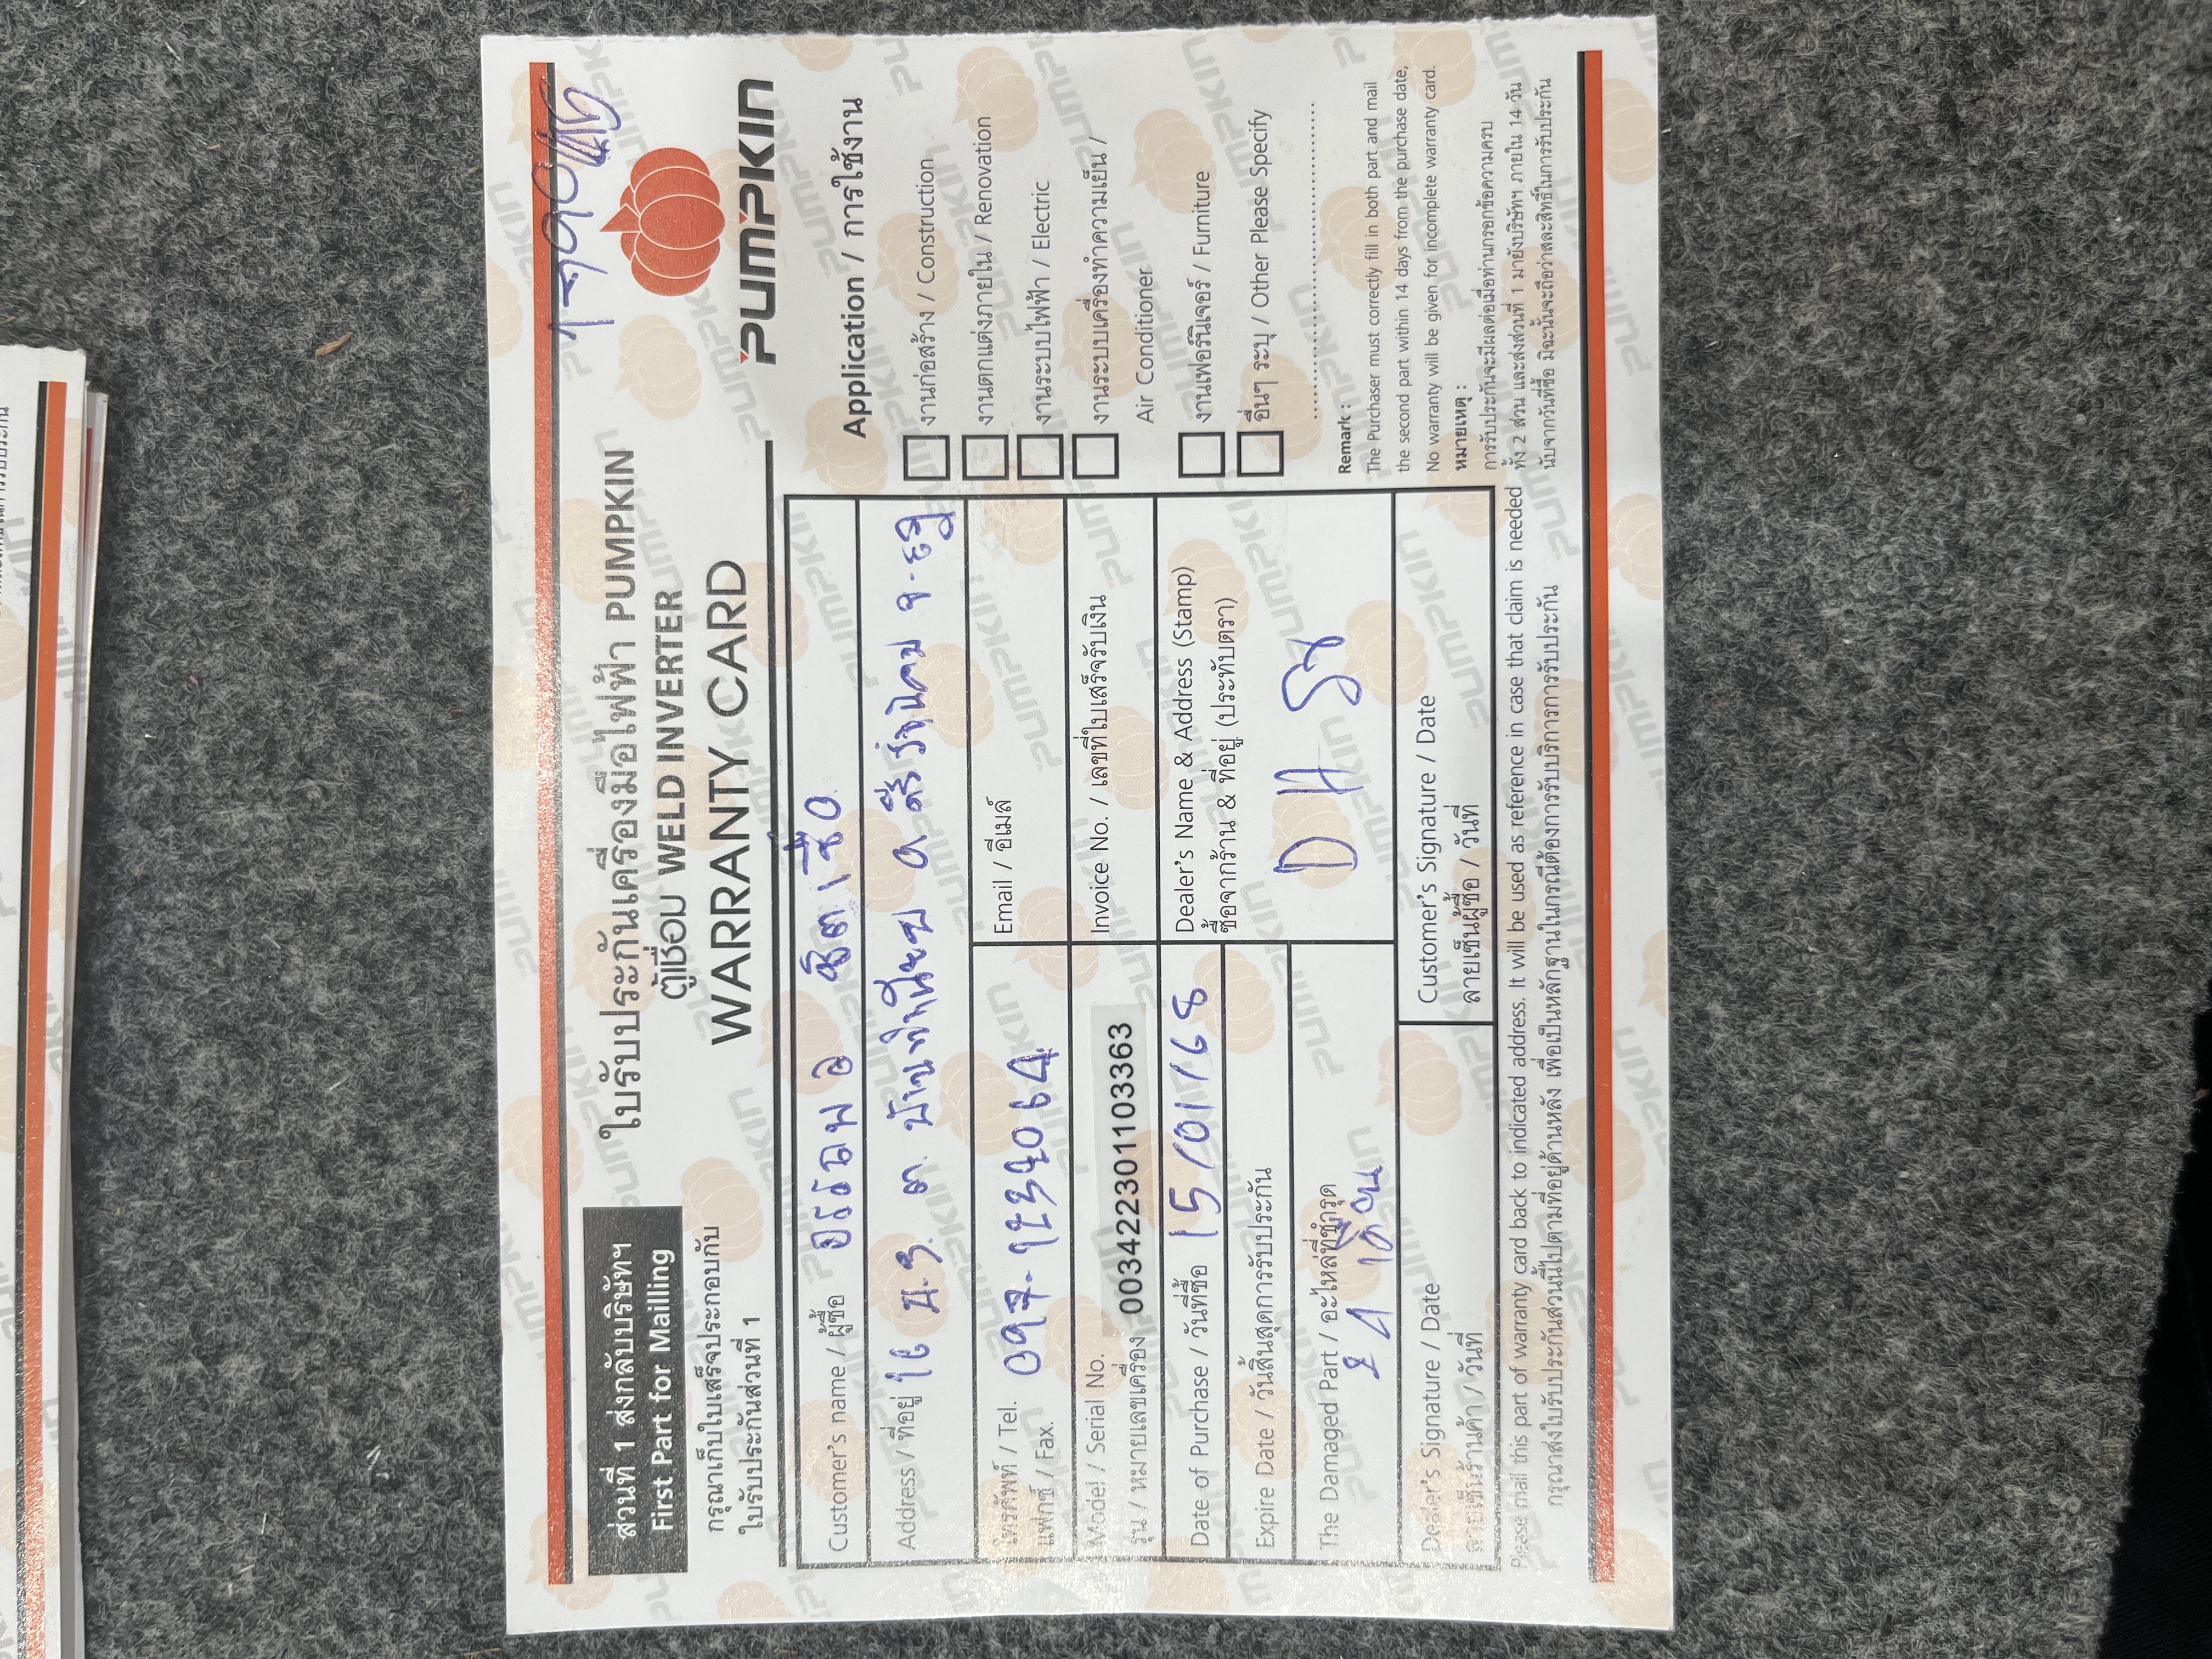 ส่วนที่ 1 ส่งกลับบริษัทฯ
First Part for Mailling
กรุณาเก็บใบเสร็จประกอบกับ
ใบรับประกันส่วนที่ 1
ใบรับประกันเครื่องมือไฟฟ้า PUMPKIN
ตู้เชื่อม WELD INVERTER
WARRANTY CARD
PUMPKIN
Customer's name / ผู้ซื้อ
Address / ที่อยู่ 16 ม.3
โทรศัพท์ / Tel. 097-1232064
แฟกซ์ / Fax.
Email / อีเมล์
Model / Serial No.
รุ่น / หมายเลขเครื่อง 003422301103363
Invoice No. / เลขที่ใบเสร็จรับเงิน
Date of Purchase / วันที่ซื้อ 15/01/68
Expire Date / วันสิ้นสุดการรับประกัน
The Damaged Part / อะไหล่ที่ชำรุด
เดือน
Dealer's Name & Address (Stamp)
ซื้อจากร้าน & ที่อยู่ (ประทับตรา)
D H
Dealer's Signature / Date
ลายเซ็นร้านค้า / วันที่
Customer's Signature / Date
ลายเซ็นผู้ซื้อ / วันที่
Application / การใช้งาน
งานก่อสร้าง / Construction
งานตกแต่งภายใน / Renovation
งานระบบไฟฟ้า / Electric
งานระบบเครื่องทำความเย็น /
Air Conditioner
งานเฟอร์นิเจอร์ / Furniture
อื่นๆ ระบุ / Other Please Specify
Remark :
The Purchaser must correctly fill in both part and mail
the second part within 14 days from the purchase date,
No warranty will be given for incomplete warranty card.
หมายเหตุ :
การรับประกันจะมีผลต่อเมื่อท่านกรอกข้อความครบ
ทั้ง 2 ส่วน และส่งส่วนที่ 1 มายังบริษัทฯ ภายใน 14 วัน
นับจากวันที่ซื้อ มิฉะนั้นจะถือว่าสละสิทธิ์ในการรับประกัน
Please mail this part of warranty card back to indicated address. It will be used as reference in case that claim is needed
กรุณาส่งใบรับประกันส่วนนี้ไปตามที่อยู่ด้านหลัง เพื่อเป็นหลักฐานในกรณีต้องการรับบริการการรับประกัน